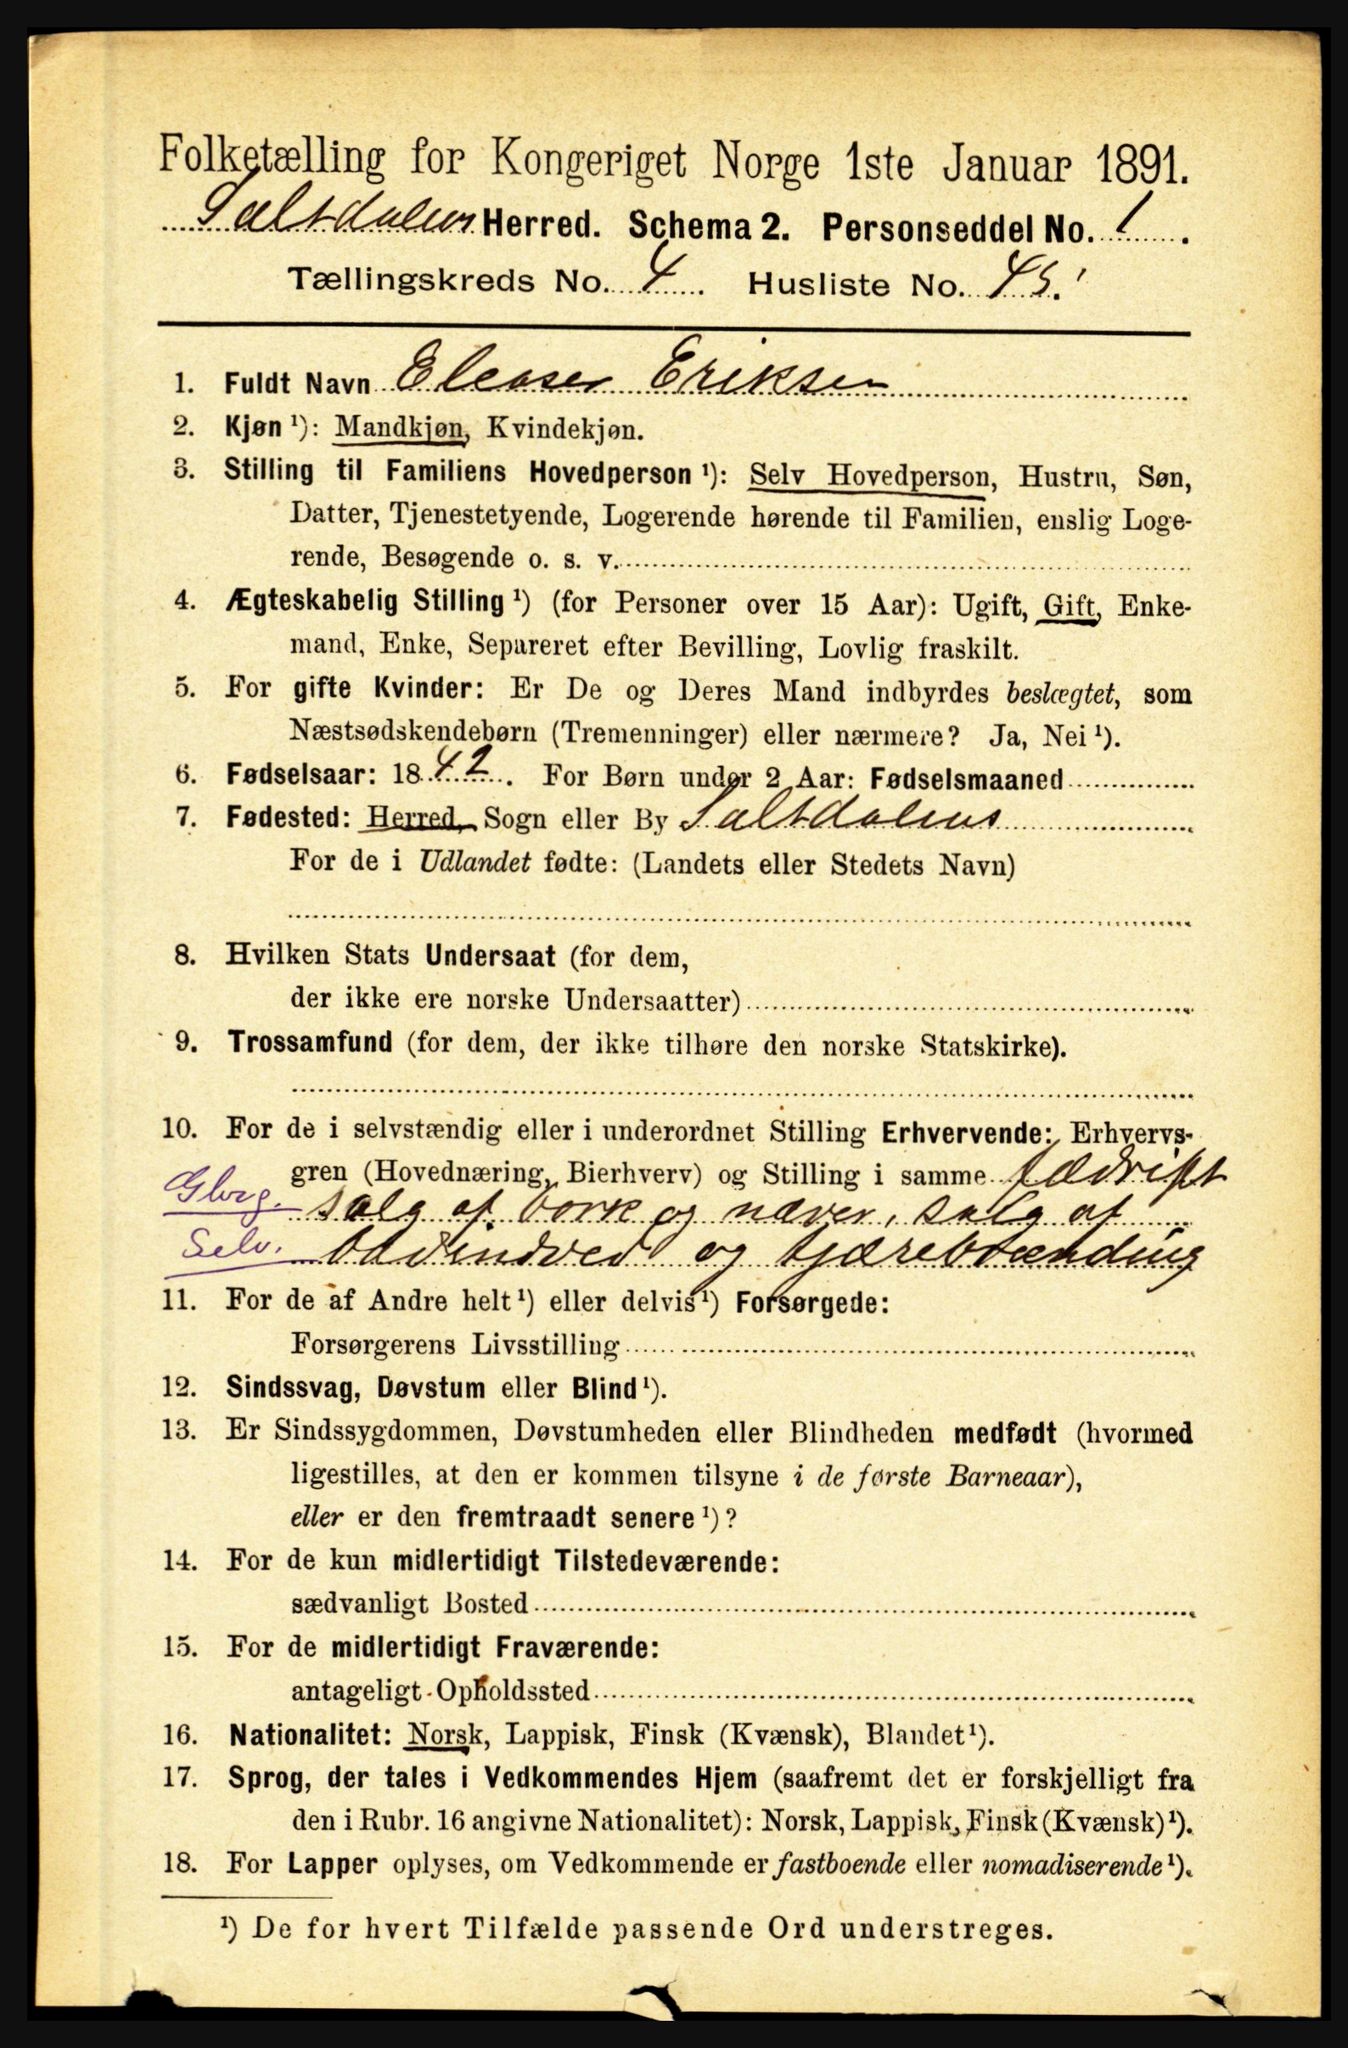 Folketælling for Kongeriget Norge 1ste Januar 1891.
Saltdalens Herred. Schema 2. Personseddel No. 1.
Tællingskreds No. 4. Husliste No. 45.
1. Fuldt Navn Eleaser Eriksen
2. Kjøn ¹): Mandkjøn, Kvindekjøn.
3. Stilling til Familiens Hovedperson ¹): Selv Hovedperson, Hustru, Søn,
Datter, Tjenestetyende, Logerende hørende til Familien, enslig Loge-
rende, Besøgende o. s. v.
4. Ægteskabelig Stilling ¹) (for Personer over 15 Aar): Ugift, Gift, Enke-
mand, Enke, Separeret efter Bevilling, Lovlig fraskilt.
5. For gifte Kvinder: Er De og Deres Mand indbyrdes beslægtet, som
Næstsødskendebørn (Tremenninger) eller nærmere? Ja, Nei ¹).
6. Fødselsaar: 1842. For Børn under 2 Aar: Fødselsmaaned
7. Fødested: Herred, Sogn eller By Saltdalens
For de i Udlandet fødte: (Landets eller Stedets Navn)
8. Hvilken Stats Undersaat (for dem,
der ikke ere norske Undersaatter)
9. Trossamfund (for dem, der ikke tilhøre den norske Statskirke).
10. For de i selvstændig eller i underordnet Stilling Erhvervende: Erhvervs-
gren (Hovednæring, Bierhverv) og Stilling i samme fædrift
salg af bork og næver, salg af
og tjærebrænding
Selv.
11. For de af Andre helt ¹) eller delvis ¹) Forsørgede:
Forsørgerens Livsstilling
12. Sindssvag, Døvstum eller Blind ¹).
13. Er Sindssygdommen, Døvstumheden eller Blindheden medfødt (hvormed
ligestilles, at den er kommen tilsyne i de første Barneaar),
eller er den fremtraadt senere ¹)?
14. For de kun midlertidigt Tilstedeværende:
sædvanligt Bosted
15. For de midlertidigt Fraværende:
antageligt Opholdssted
16. Nationalitet: Norsk, Lappisk, Finsk (Kvænsk), Blandet ¹).
17. Sprog, der tales i Vedkommendes Hjem (saafremt det er forskjelligt fra
den i Rubr. 16 angivne Nationalitet): Norsk, Lappisk, Finsk (Kvænsk) ¹).
18. For Lapper oplyses, om Vedkommende er fastboende eller nomadiserende ¹).
¹) De for hvert Tilfælde passende Ord understreges.